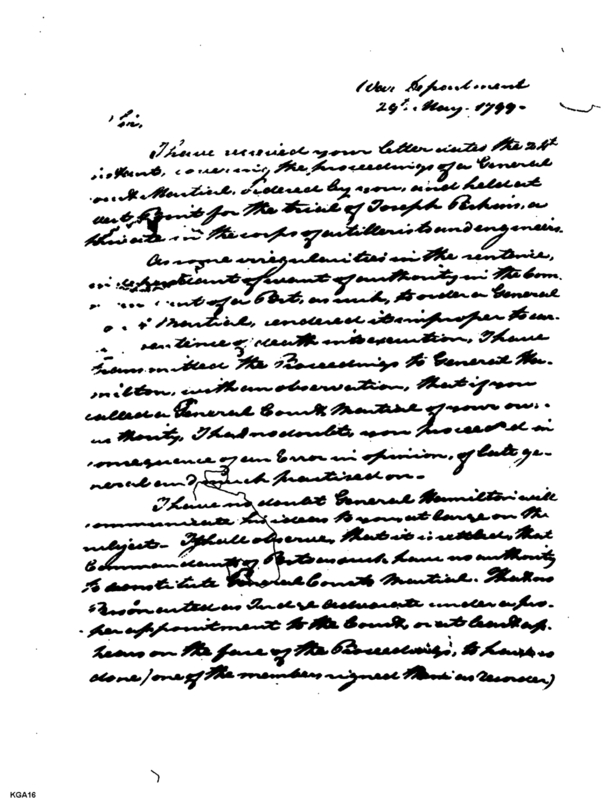 War Department
29th May 1799-
Sir,
I have received your letter dated the 24th
instant, covering the proceedings of a General
Court Martial, ordered by you, and held at
West Point for the trial of Joseph Perkins, a
private in the corps of artillerists and engineers.
As some irregularities in the sentence,
want of authority in the Com
of a Post, as such, to order a General
Martial, rendered it improper to car
sentence of death into execution, I have
transmitted the Proceedings to General Ha-
milton, with an observation, that if you
called a General Court Martial of your own
authority, I had no doubt you proceeded in
consequence of an Error in opinion, of late ge-
neral and much practised on-
I have no doubt General Hamilton will
communicate his ideas to you at large on the
subject- I shall observe, that it is settled, that
Commandants of Posts as such have no authority
to constitute General Courts Martial. That no
Person acted as Judge Advocate under a pro-
per appointment to the Court, or at least ap-
pears on the face of the Proceedings, to have so
done (one of the members signed them as recorder)
KGA16